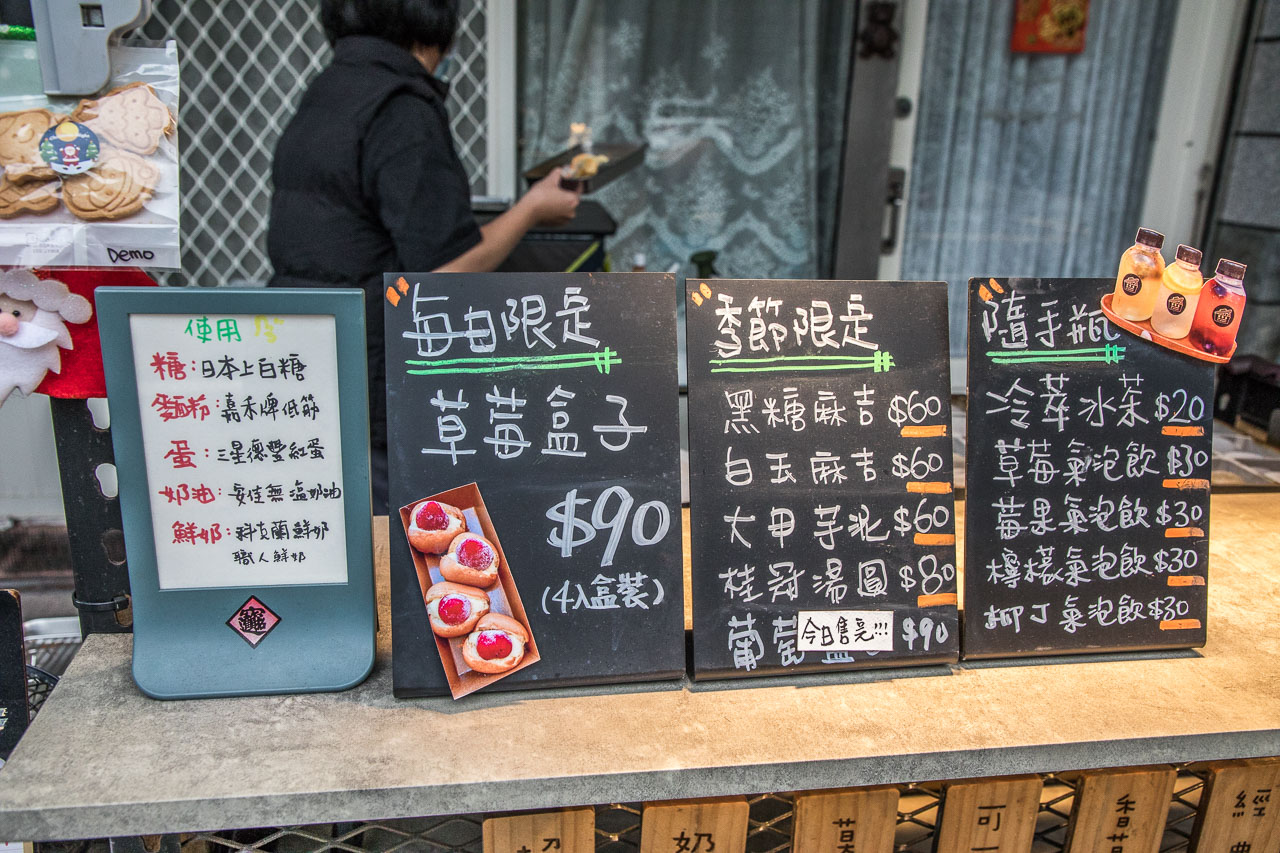 Demo
使用
糖：日本上白糖
麵粉：嘉禾牌低筋
蛋：三星德豐紅蛋
奶油：安佳無塩奶油
鮮奶：科克蘭鮮奶
職人鮮奶
每日限定
草莓盒子
$90
(4入盒裝)
季節限定
黑糖麻吉 $60
白玉麻吉 $60
大甲芋泥 $60
桂冠湯圓 $80
葡萄 $90
今日售完!!!
隨手瓶
冷萃冰茶 $20
草莓氣泡飲 $30
莓果氣泡飲 $30
檸檬氣泡飲 $30
柳丁氣泡飲 $30
奶
可
香
經典